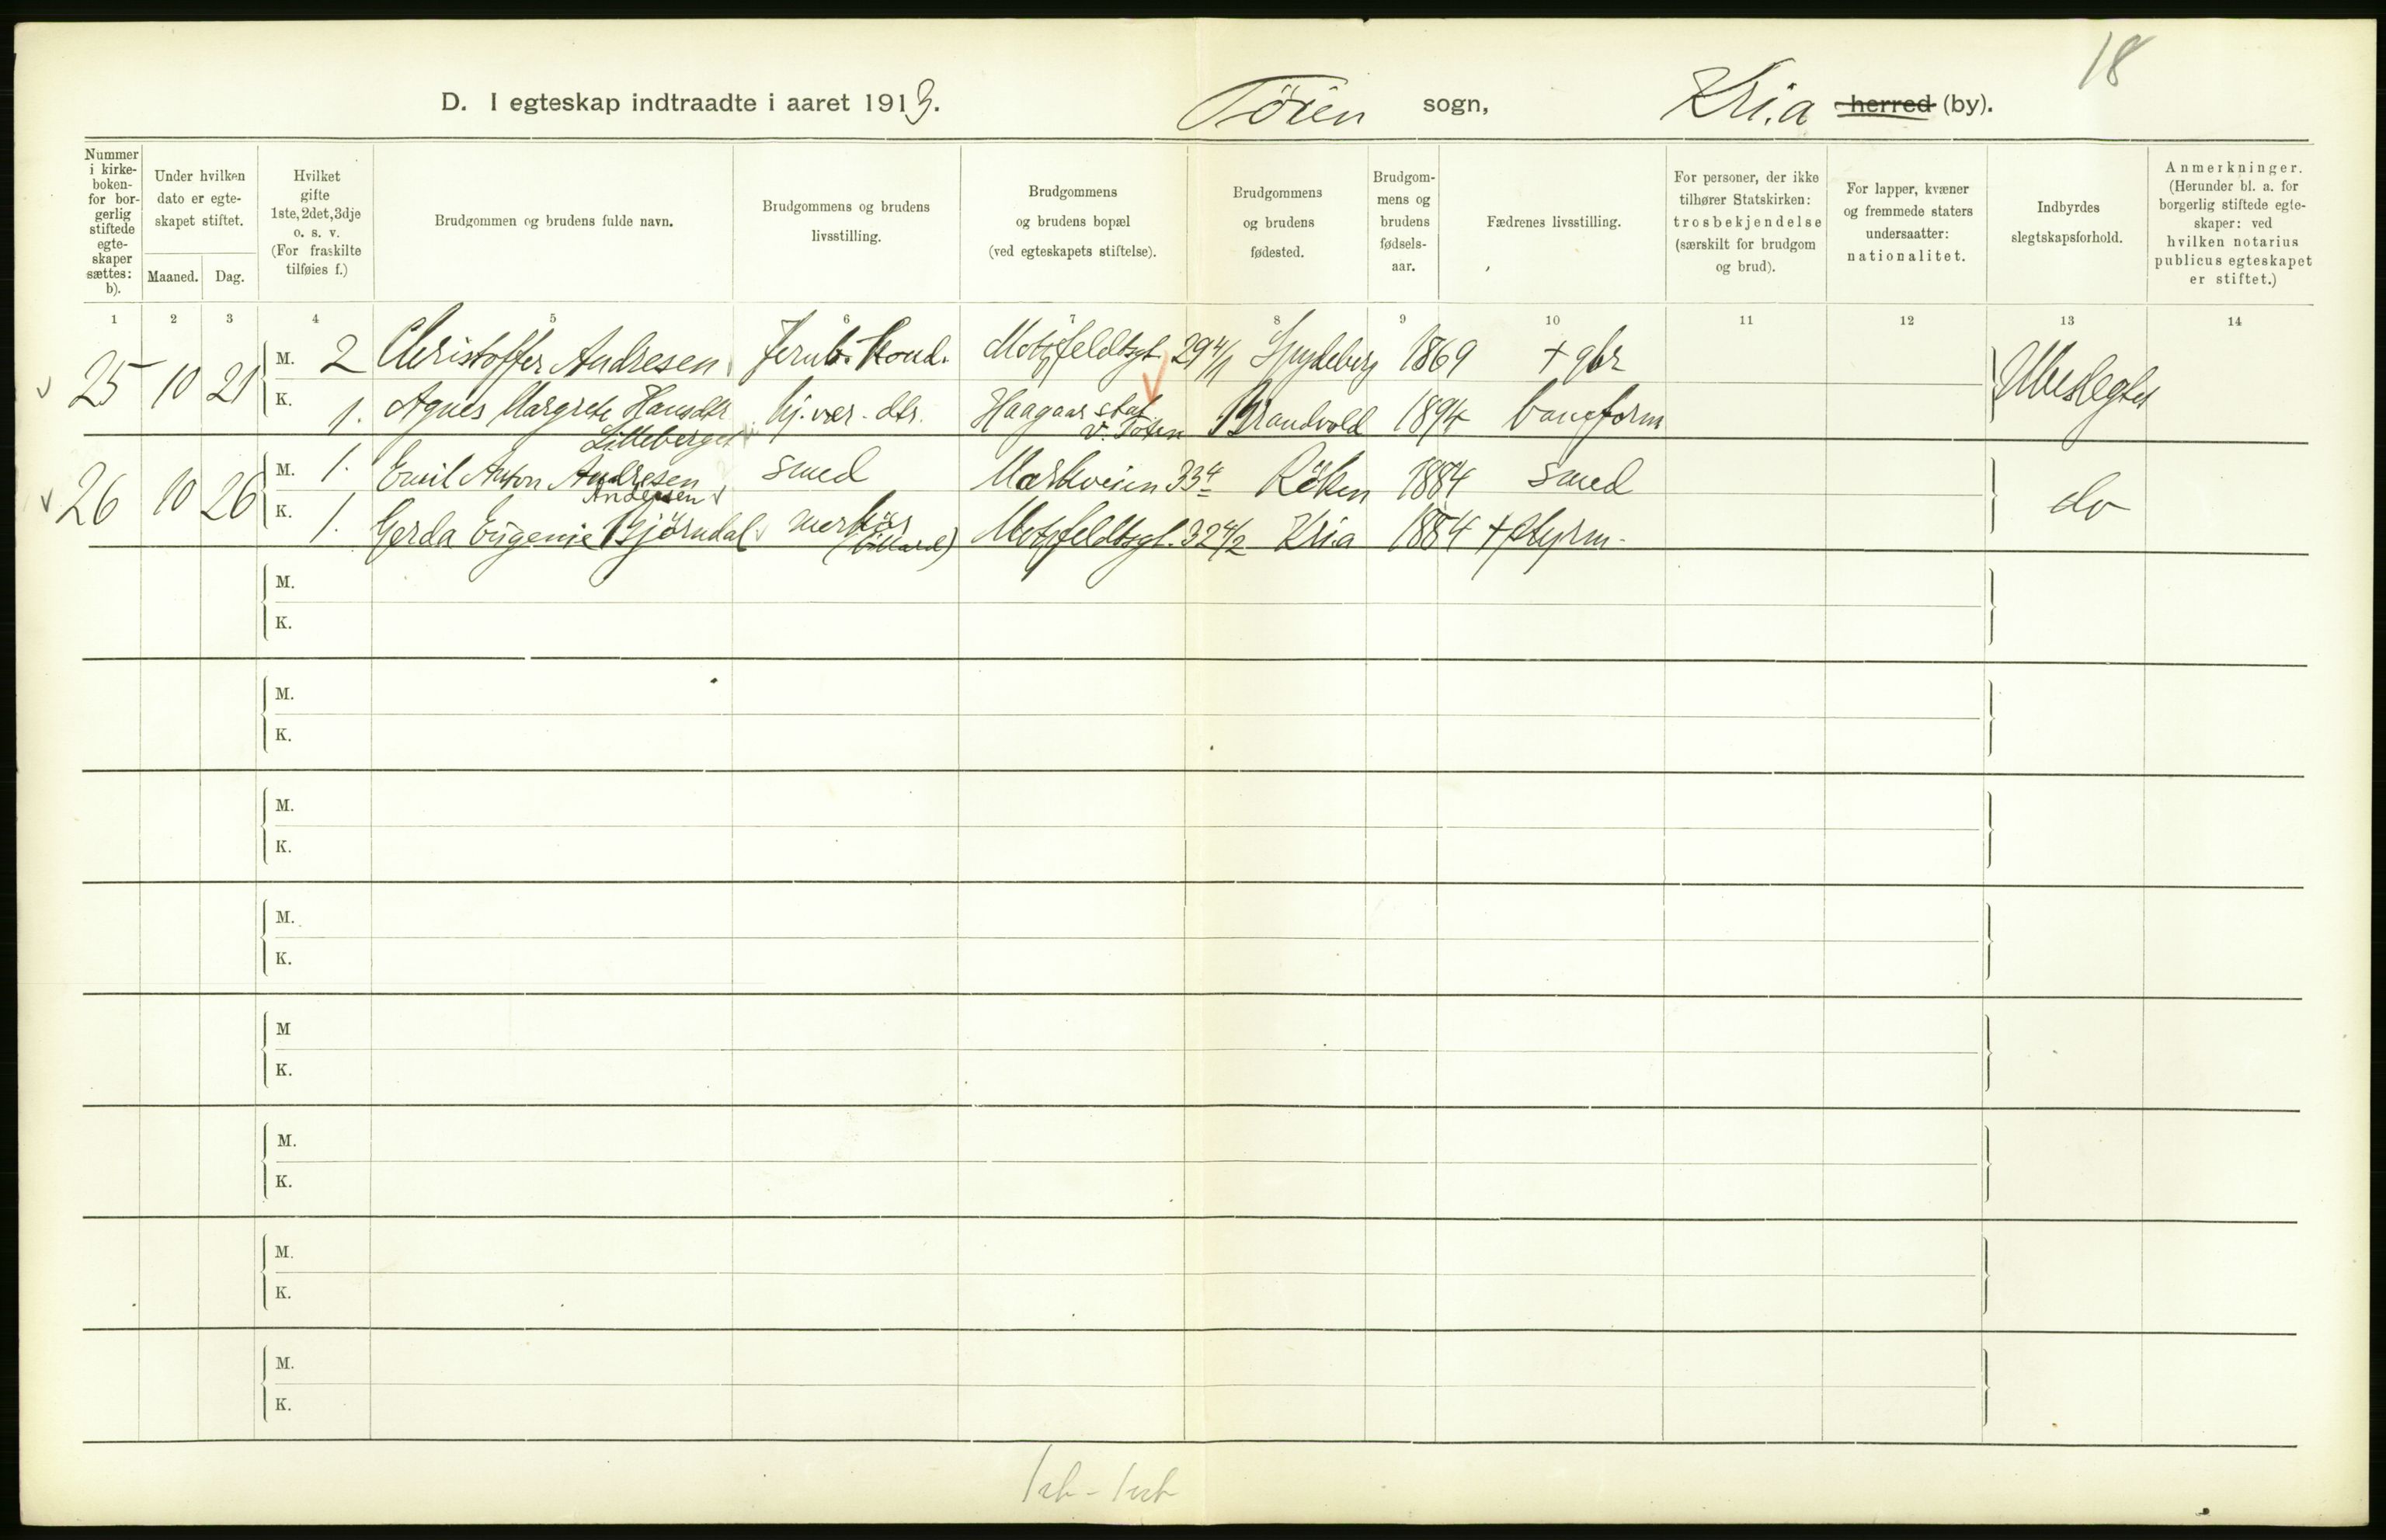 18
D. I egteskap indtraadte i aaret 1913. Töien sogn, Kria herred (by).
Nummer i kirke-boken- for bor-gerlig stiftede egte-skaper sættes: b).
Under hvilken dato er egte-skapet stiftet.
Maaned. Dag.
Hvilket gifte 1ste, 2det, 3dje o. s. v. (For fraskilte tilføies f.)
Brudgommen og brudens fulde navn.
Brudgommens og brudens livsstilling.
Brudgommens og brudens bopæl (ved egteskapets stiftelse).
Brudgommens og brudens fødested.
Brudgom-mens og brudens fødsels-aar.
Fædrenes livsstilling.
For personer, der ikke tilhører Statskirken: trosbekjendelse (særskilt for brudgom og brud).
For lapper, kvæner og fremmede staters undersaatter: nationalitet.
Indbyrdes slegtskapsforhold.
Anmerkninger. (Herunder bl. a. for borgerlig stiftede egte-skaper: ved hvilken notarius publicus egteskapet er stiftet.)
1 2 3 4 5 6 7 8 9 10 11 12 13 14
25 10 21 M. 2 Christoffer Andresen Jernb. Kond. Motzfeldtsgt. 29 4/1 Spydeberg 1869 + gbr Ubeslegtet
K. 1. Agnes Margrete Hansdtr Lilleberget hj. vær. dtr. Haagaar stat v. Toten Brandvold 1894 baneform
26 10 26 M. 1. Emil Anton Andresen Andersen smed Markveien 33 4 Röken 1884 smed do
K. 1. Gerda Eugenie Björndal Motzfeldtsgt. 32 4/2 Kria 1884 + Styrm.
M.
K.
M.
K.
M.
K.
M.
K.
M
K.
M.
K.
M.
K.
M.
K.